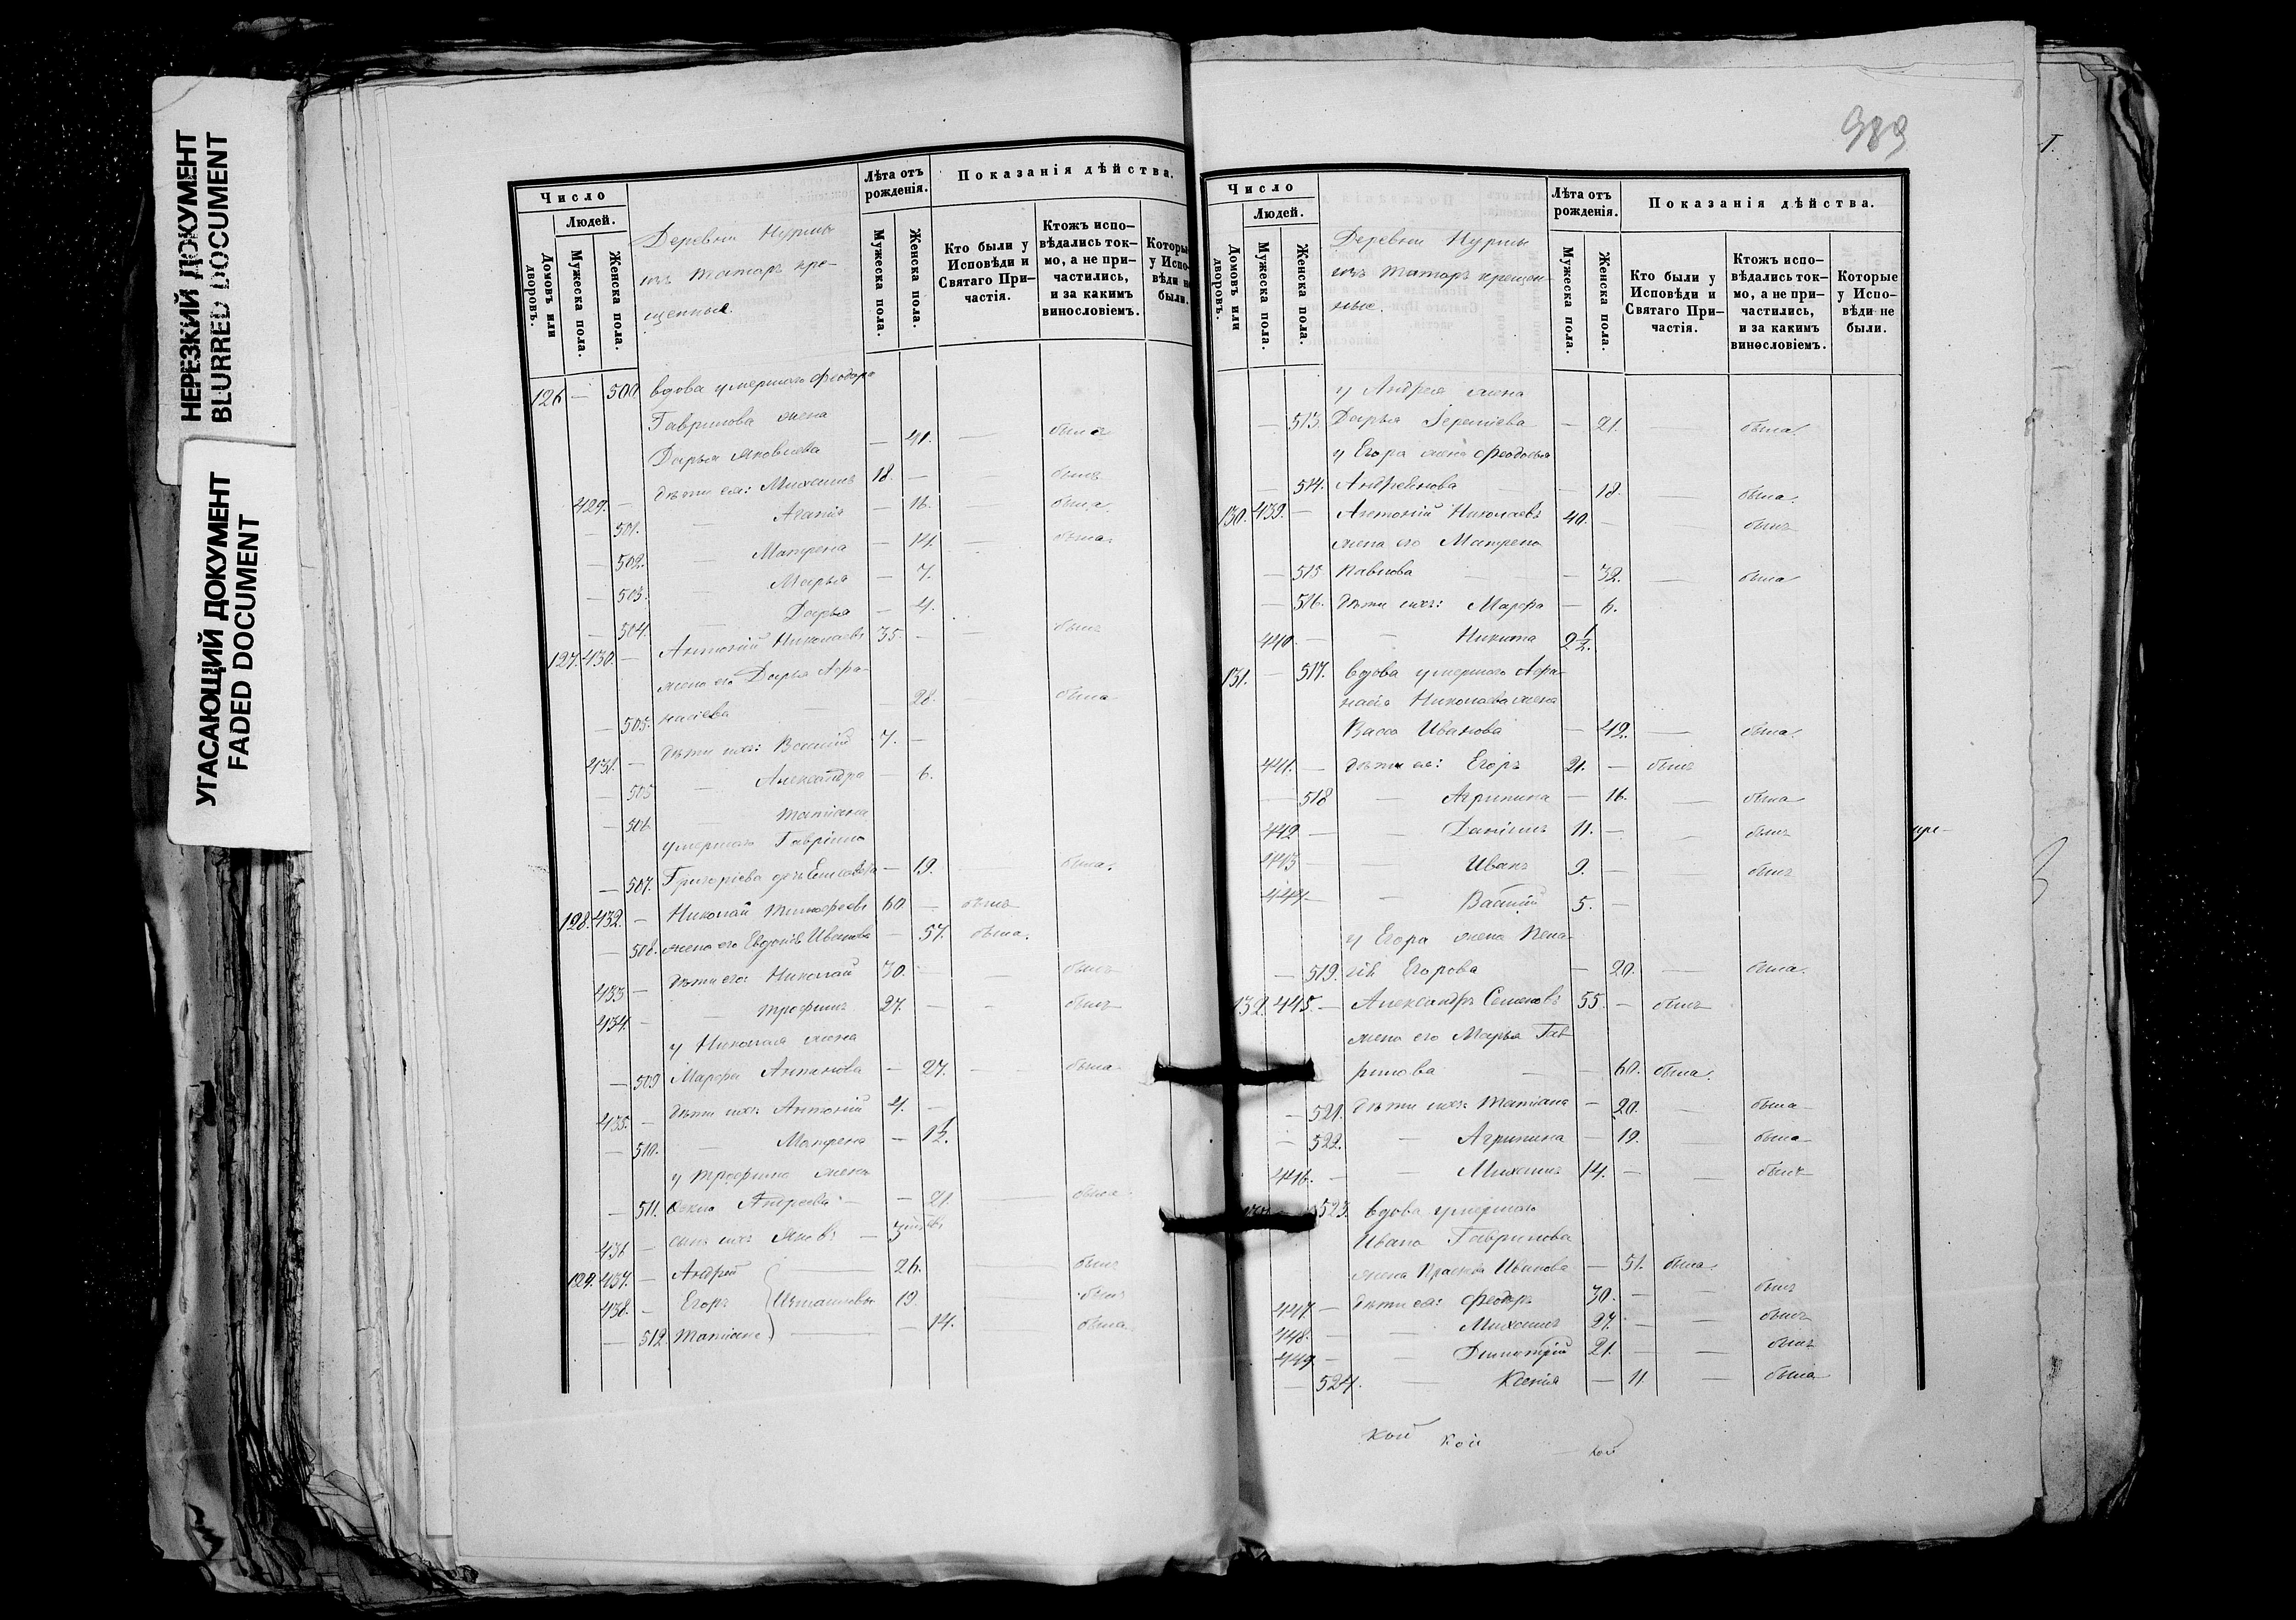 НЕРЕЗКИЙ ДОКУМЕНТ
BLURRED DOCUMENT
УГАСАЮЩИЙ ДОКУМЕНТ
FADED DOCUMENT
Число
Людей.
Домовъ или дворовъ.
Мужеска пола.
Женска пола.
Деревни Нурмы
изъ татаръ кре-
щенные.
Лѣта отъ рожденія.
Мужеска пола.
Женска пола.
Показанія дѣйства.
Кто были у Исповѣди и Святаго При-частія.
Ктожъ испо-вѣдались ток-мо, а не при-частились, и за какимъ винословіемъ.
Которые у Испо-вѣди не были.
126 — 500 вдова умершаго Феодора
Гаврилова жена
Дарья Яковлева — 41. — была
429. — дѣти ея: Михаилъ 18. — — былъ
— 501. — Агапія — 16. — была
— 502. — Матрена — 14. — была
— 503. — Марья — 7.
— 504. — Дарья — 4.
127. 430. — Антоній Николаевъ 35. — — былъ
жена его Дарья Афа-
— 505. насіева — 28. — была
431. — дѣти ихъ: Василій 7. —
— 505 — Александра — 6.
— 506 — Татіана
умершаго Гавріила
— 507. Григоріева дочь Елисавета — 19. была.
128. 432. — Николай Тимофеевъ 60 — былъ
— 508. жена его Евдокія Иванова — 57. была.
433 — дѣти его: Николай 30. — — былъ
434. — — Трофимъ 27. — — былъ
у Николая жена
— 509 Марфа Антонова — 27. — была
435. — дѣти ихъ: Антоній 4. —
— 510. — Матрена — 1 1/2.
у Трофима жена
— 511. Фекла Андреева — — 21. — была
436 — сынъ ихъ Яковъ — 3
129. 437. — Андрей — 26. — былъ
438. — Егоръ 19. — былъ
— 512. Татіана — — 14. была
989
Число
Людей.
Домовъ или дворовъ.
Мужеска пола.
Женска пола.
Деревни Нурмы
изъ татаръ крещен-
ные.
Лѣта отъ рожденія.
Мужеска пола.
Женска пола.
Показанія дѣйства.
Кто были у Исповѣди и Святаго При-частія.
Ктожъ испо-вѣдались ток-мо, а не при-частились, и за какимъ винословіемъ.
Которые у Испо-вѣди не были.
у Андрея жена
— 513. Дарья — 21. — была.
у Егора жена Феодосья
— 514. Андреянова — 18. — была.
130. 439. — Антоній Николаевъ 40. — былъ
жена его Матрена
— 515 Павлова — — 32. — была
— 516. дѣти ихъ: Марфа — 6.
440. — — Никита 2 1/2.
131. — 517. вдова умершаго Афа-
насія Николаева жена
Васса Иванова — 42. — была.
441. — дѣти ея: Егоръ 21. — былъ
— 518 — Агрипина — 16. — была
442 — — Даніилъ 11. — — былъ
443 — — Иванъ 9. — — былъ
444 — — Василій 5. —
у Егора жена Пела-
— 519. гія Егорова — 20. — была.
132. 445. — Александръ Семеновъ 55. — былъ
жена его Марья Гав-
рилова — — 60. была.
— 521. дѣти ихъ: Татіана — 20. — была
— 522. — Агрипина — 19. — была
446. — — Михаилъ 14. — былъ
— 523. вдова умершаго
Ивана Гаврилова
жена Прасковья Иванова — 51. была.
447. — дѣти ея: Феодоръ 30. — — былъ
448. — — Михаилъ 27. — — былъ
449 — — Димитрій 21. — — былъ
— 524. — Ксенія — 11 — была
кой кой кой